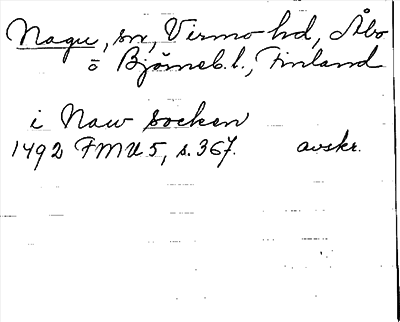 Nagu, sn, Virmo hd, Åbo
o Björneb. l., Finland
i Naw socken
1492 FMU 5, s. 367. avskr.